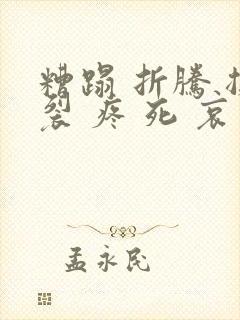 糟蹋 折騰
裂 疼 死 哀
孟永民